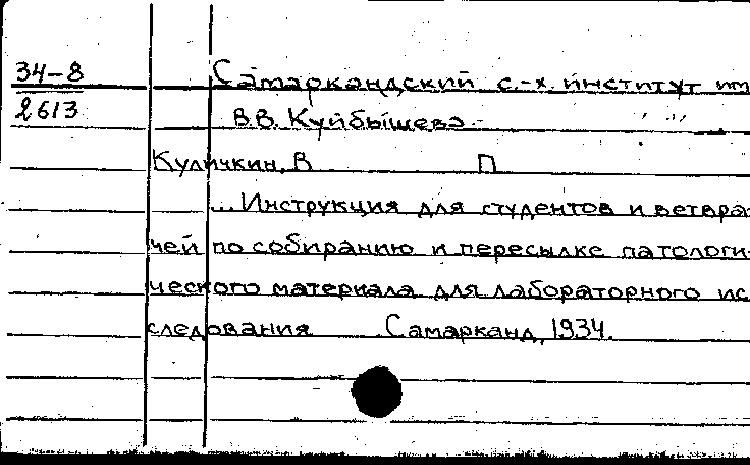 34-8
2613
Самаркандский с.-х. институт им
В.В. Куйбышева
Куличкин, В П
... Инструкция для студентов и ветвра
чей по собиранию и пересылке патологи-
ческого материала для лабораторного ис
следования Самарканд, 1934.